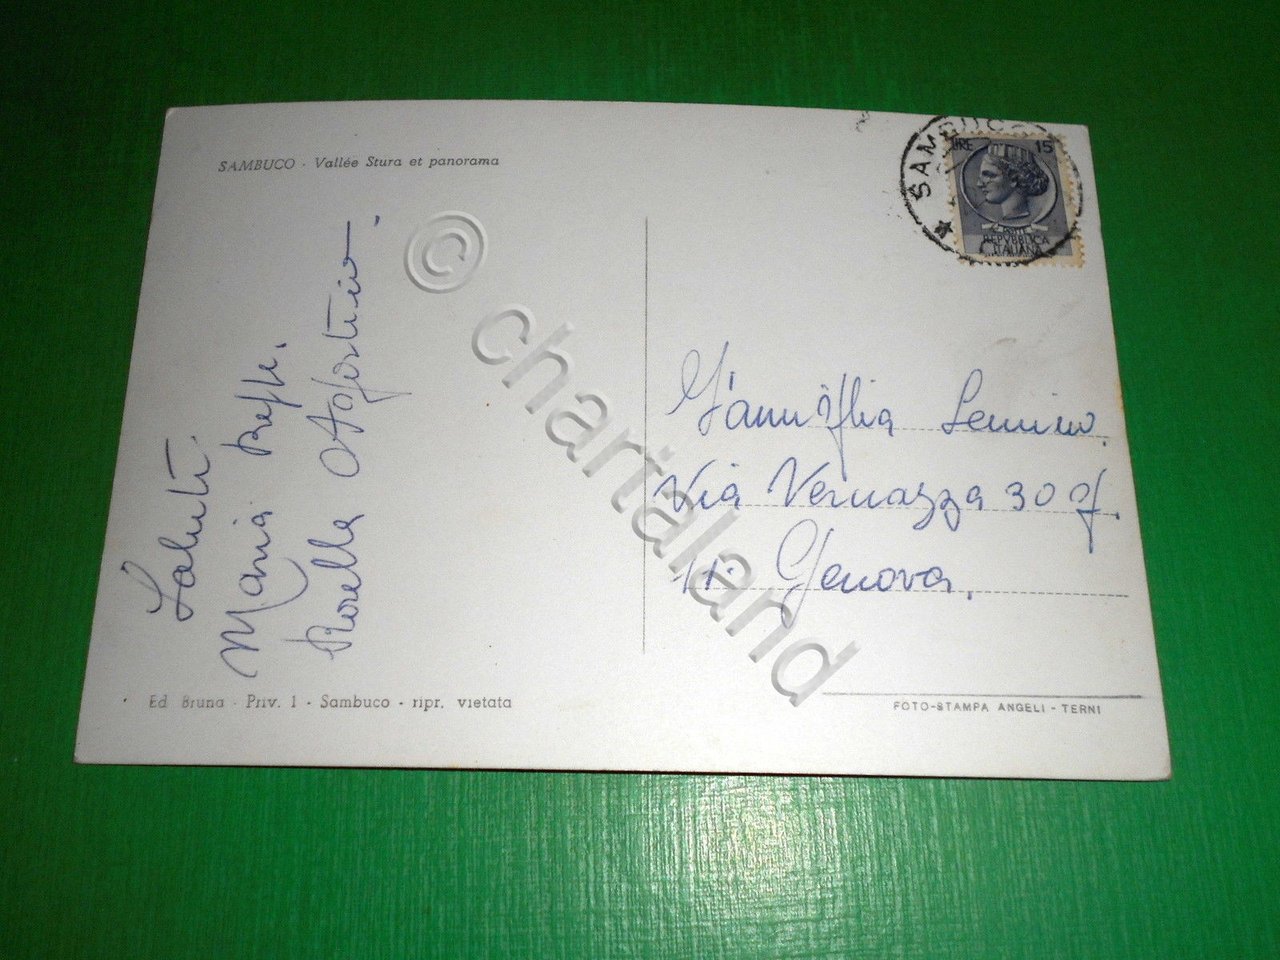 SAMBUCO - Vallée Stura et panorama
SAMBUCO
LIRE 15
POSTE
REPVBBLICA
ITALIANA
Saluti.
Maria
Rosella Agostino.
Famiglia Semino.
Via Vernazza 30
Genova.
Ed Bruna - Priv. 1 - Sambuco - ripr. vietata
FOTO-STAMPA ANGELI - TERNI
© chartaland